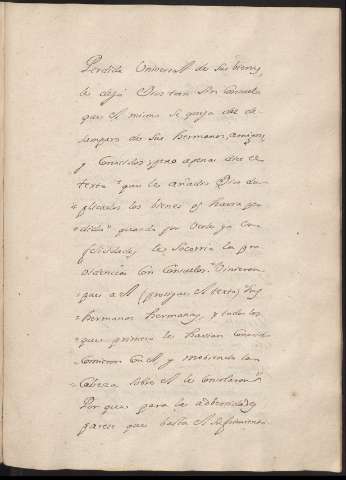 Perdida Universal de sus bienes,
le dejó Dios tan sin consuelo
que el mismo se queja del de-
samparo de sus hermanos, amigos,
y Conocidos, pero apenas dice el
texto que le añadió Dios du-
plicados los bienes q̃ havia per-
dido" quando por verle ya con
felicidades le socorria la pro-
videncia con consuelos. "Vinieron
pues a el (prosigue el texto) sus
hermanos hermanas, y todos los
que primero le havian conocido
Comieron con el, y moviendo la
Cabeza sobre el le consolaron".
Por que para las adbersidades
parece que basta el sufrimiento